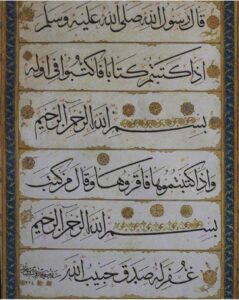 قال رسول الله صلى الله عليه وسلم
اذا كتبتم كتابا فاكتبوا في اوله
بسم الله الرحمن الرحيم
واذا كتبتموها فاقروها وقال من كتب
بسم الله الرحمن الرحيم
غفر له صدق حبيب الله